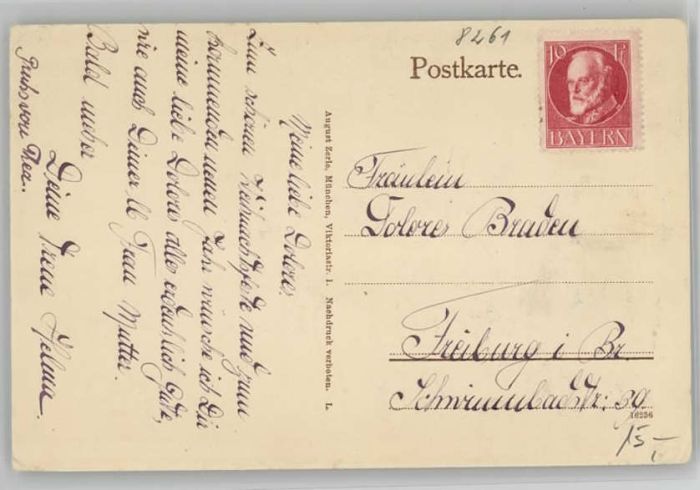 8261
Postkarte.
10 Pf
BAYERN
Meine liebe Dolores.
Zum schönen Weihnachtsfeste und zum
kommenden neuen Jahr wünsche ich Dir
meine liebe Dolores alles erdenklich Gute,
wie auch Deiner lb Frau Mutter.
Bald mehr
Deine treue Helma.
Gruss von Ther.
August Zerle, München, Viktoriastr. 1. Nachdruck verboten. L.
Fräulein
Dolores Braden
Freiburg i Br.
Schwimmbadstr: 39
16256
15,-